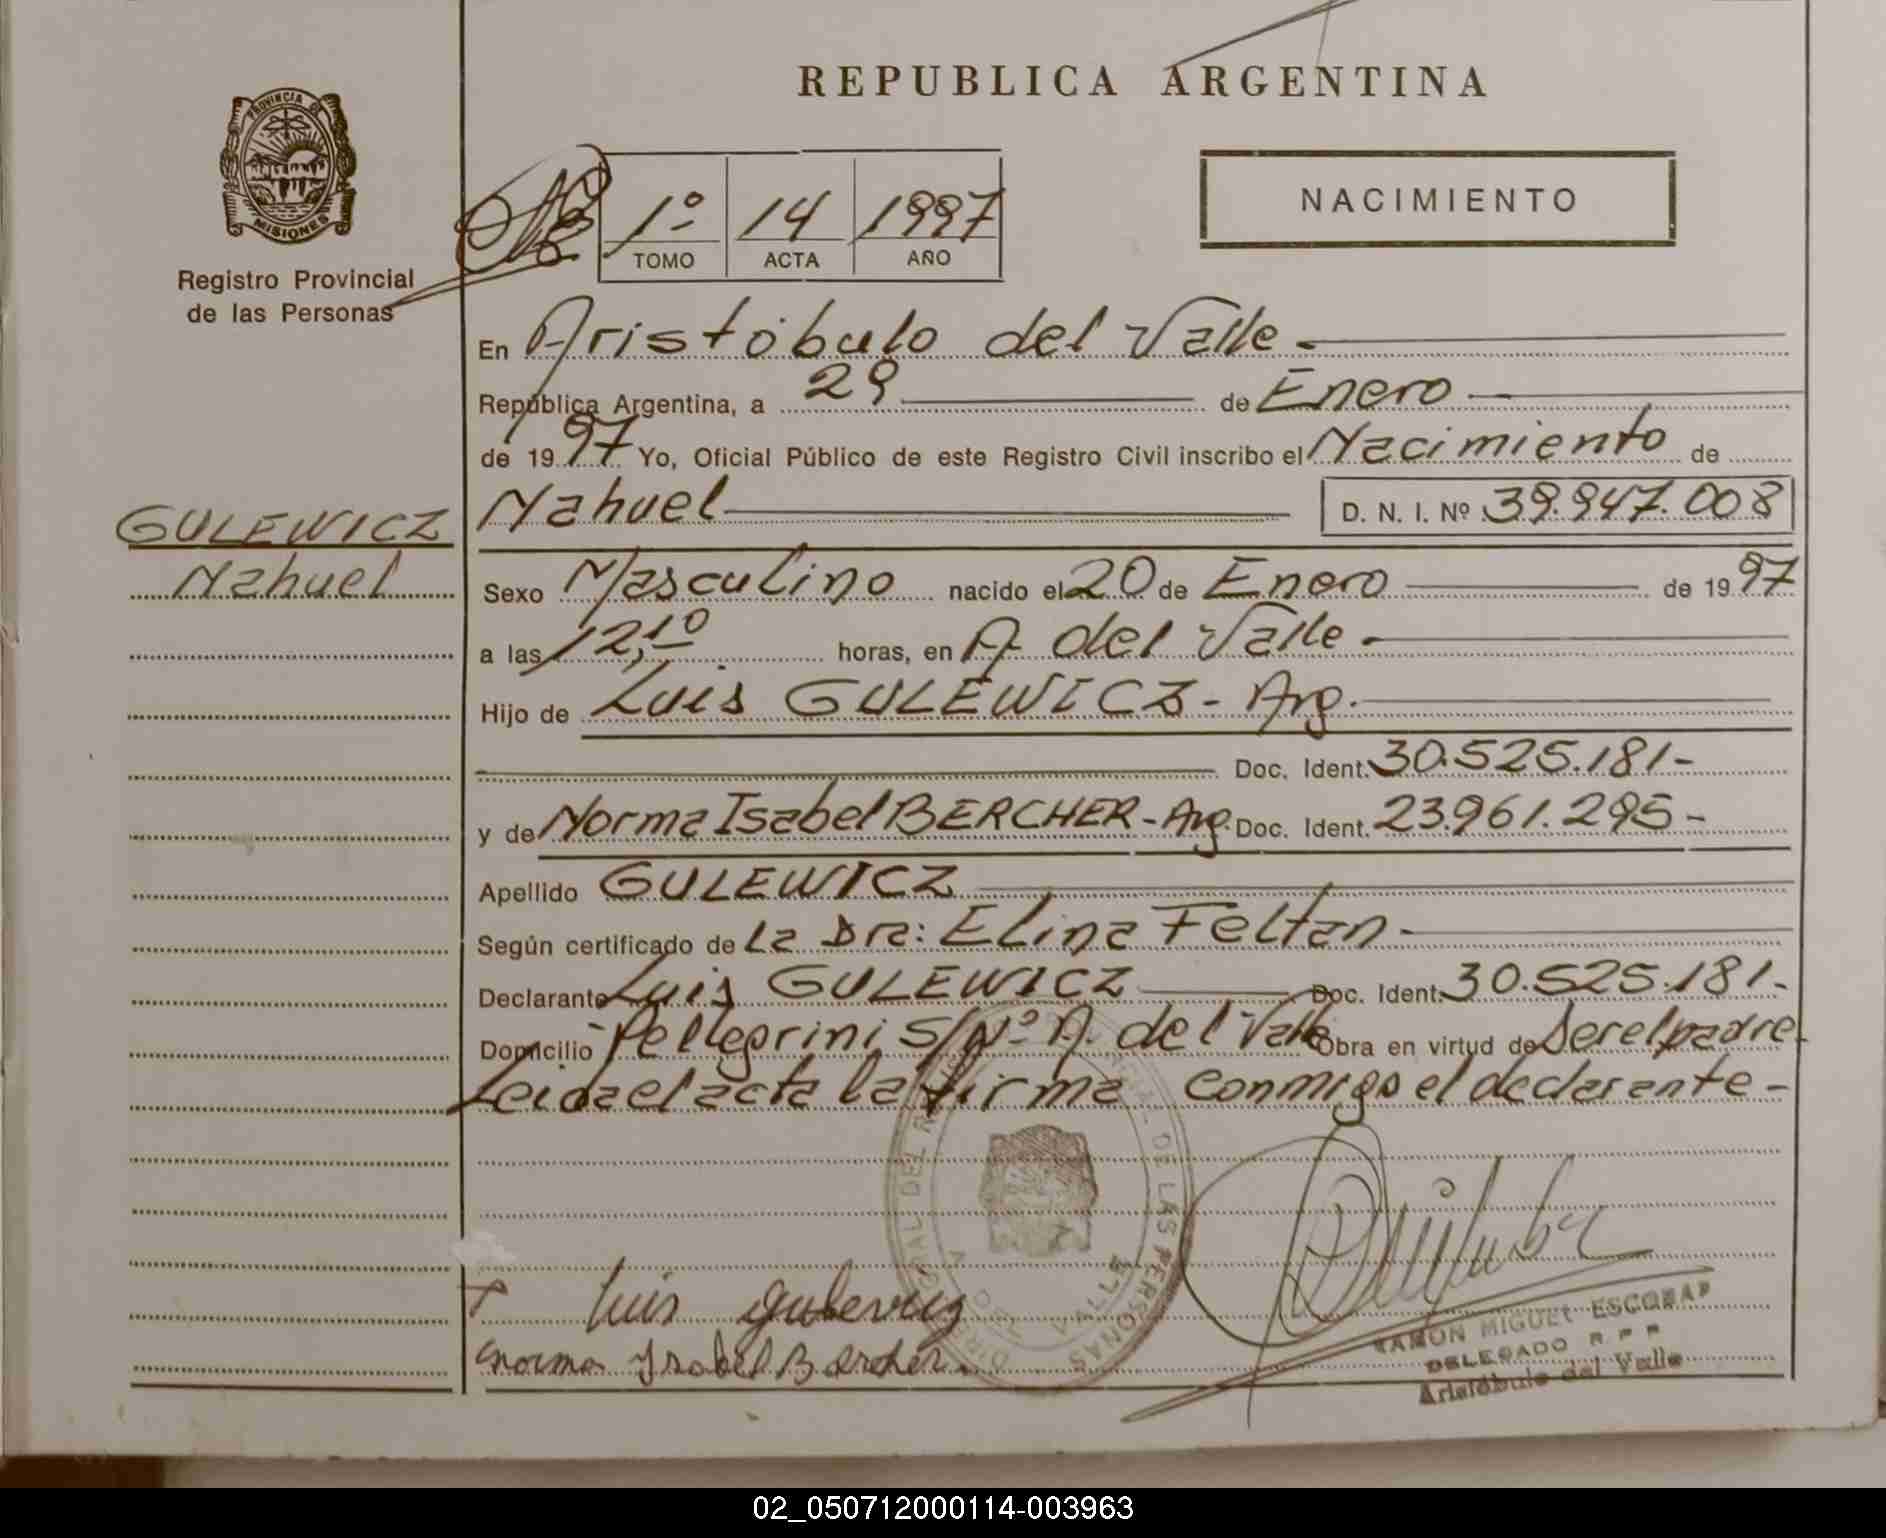 REPUBLICA ARGENTINA
PROVINCIA D
MISIONES
Registro Provincial
de las Personas
1º 14 1997
TOMO ACTA AÑO
NACIMIENTO
En Aristóbulo del Valle
República Argentina, a 29 de Enero
de 1997 Yo, Oficial Público de este Registro Civil inscribo el Nacimiento de
GULEWICZ
Nahuel
Nahuel D. N. I. Nº 39.947.008
Sexo Masculino nacido el 20 de Enero de 1997
a las 12,10 horas, en A. del Valle.
Hijo de Luis GULEWICZ - Arg.
Doc. Ident. 30.525.181-
y de Norma Isabel BERCHER - Arg. Doc. Ident. 23.961.295-
Apellido GULEWICZ
Según certificado de La Dra: Elina Feltan.
Declarante Luis GULEWICZ Doc. Ident. 30.525.181.-
Domicilio Pellegrini S/Nº A. del Valle Obra en virtud de Ser el padre.
Leida el acta la firma conmigo el declarante-
DEL VALLE
DE LAS PERSONAS
Luis Gulewicz
Norma Ysabel Bercher.
RAMON MIGUEL ESCOBAR
DELEGADO R P P
Aristóbulo del Valle
02_050712000114-003963